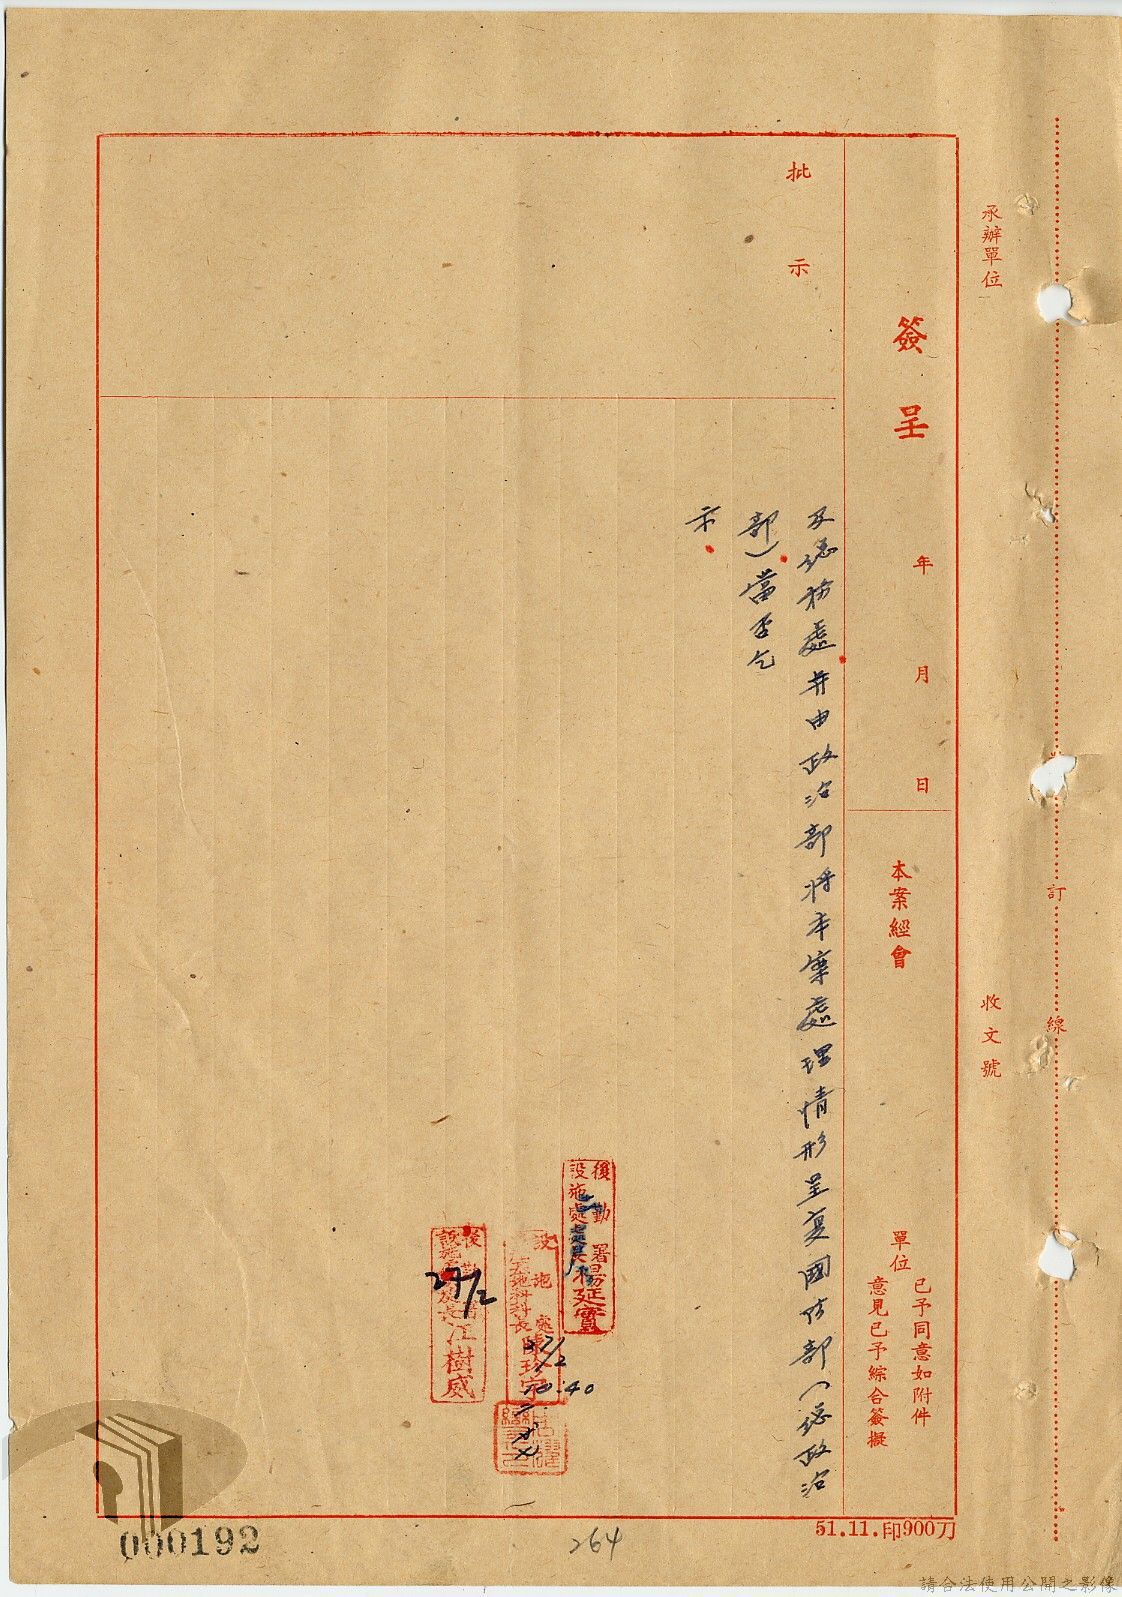 承辦單位
收文號
訂
線
簽呈
年
月
日
本案經會
單位
已予同意如附件
意見已予綜合簽擬
批示
及總務處并由政治部將本案處理情形呈复國防部（總政治
部）當否乞
示
後勤署
設施處處長楊延寰
設施處
陳珍宗
10:40
後勤署
江樹威
27/2
51.11.印900刀
000192
264
請合法使用公開之影像